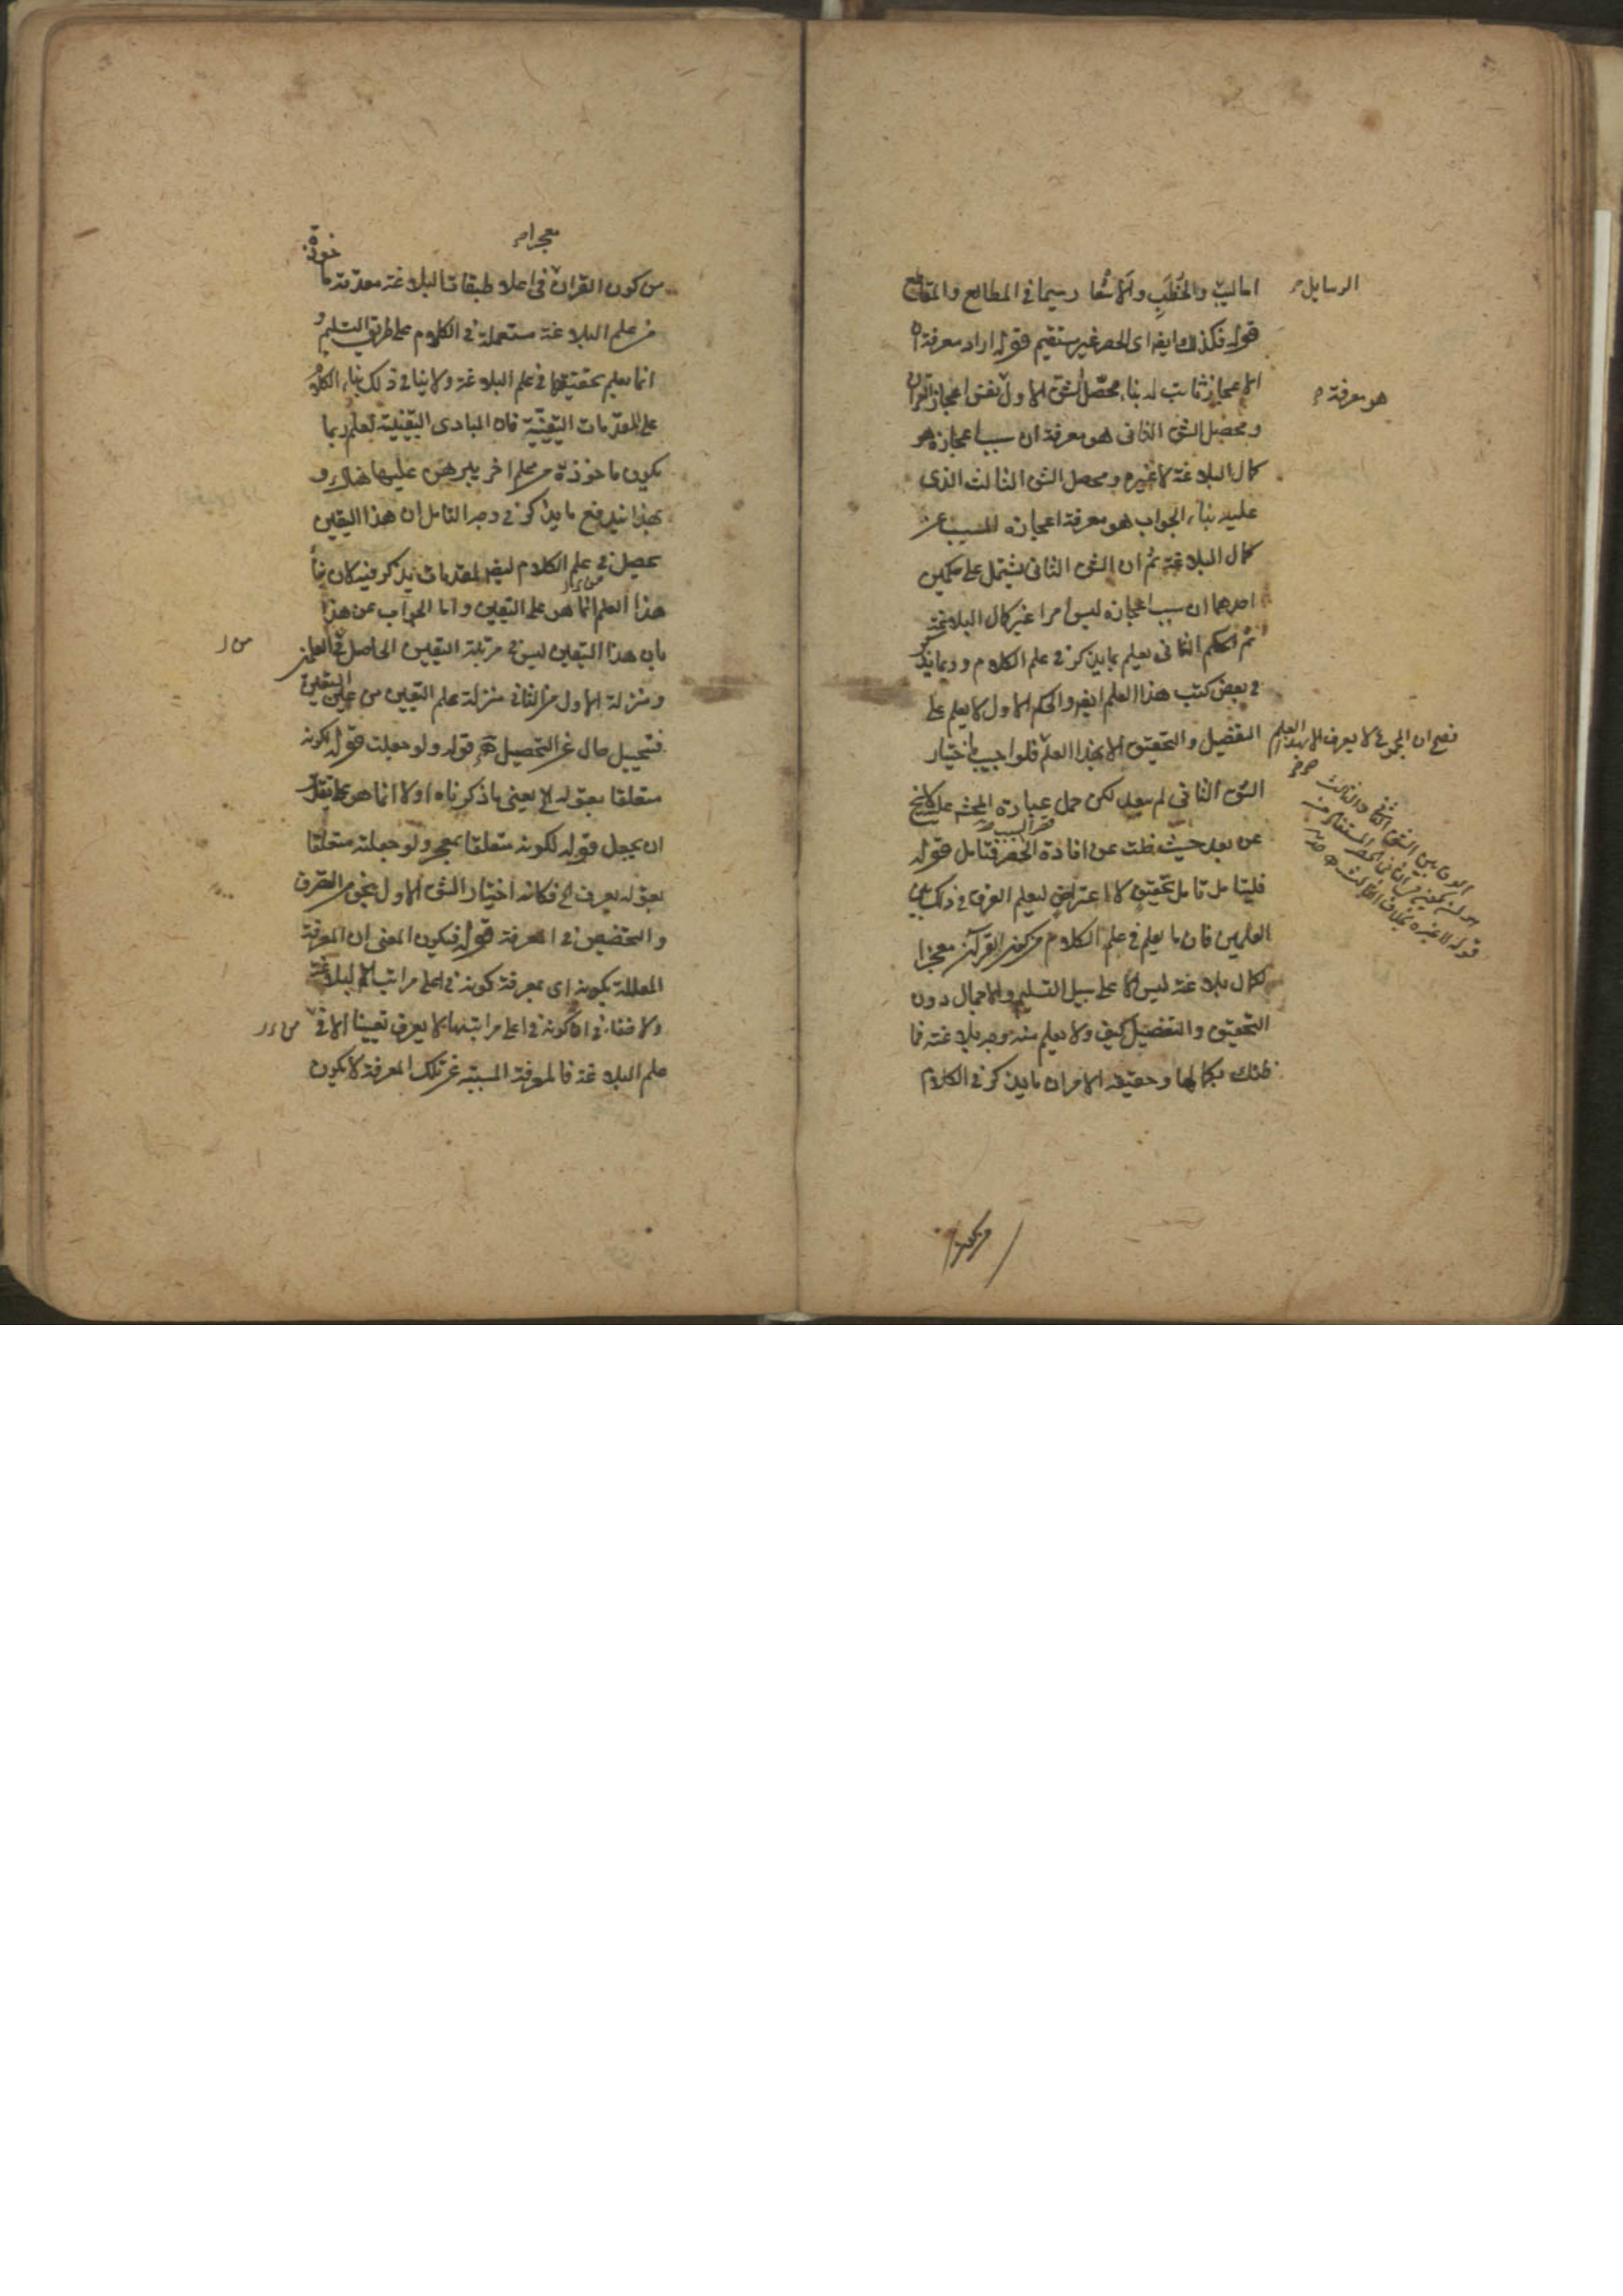 اساليب والخُطَب والاشعار سيما في المطالع والمقاطع
الرسايل
قوله فكذلك ايضا اى الحصر غير مستقيم قوله اراد معرفة ان
الاعجاز ثابت له بناء محصّل الشق الاول نفس اعجاز القرآن
هو معرفة
ومحصل الشق الثانى هو معرفة ان سبب اعجازه هو
كمال البلاغة لا غيره ومحصل الشق الثالث الذى
عليه بناء الجواب هو معرفة اعجازه المسبب عن
كمال البلاغة ثم ان الشق الثانى يشتمل على حكمين
احدهما ان سبب اعجازه ليس امرا غير كمال البلاغة
ثم الحكم الثانى يعلم بما يذكر في علم الكلام وربما يذكر
في بعض كتب هذا العلم ايضا والحكم الاول لا يعلم على
التفصيل والتحقيق الا بهذا العلم فلو اجيب باختيار
فصح ان المجموع لا يعرف الا بهذا العلم
الشق الثانى لم يبعد لكن حمل عبارة
عن بعد حيث خلت عن افادة الحصر فتأمل قوله
حصر السبب
الفرق بين الشق الثانى والثالث
قوله لا غيره بخلاف الثالث
فليتامل تامل تحقيق لا اعتراض ليعلم الفرق في ذلك بين
العلمين فان ما يعلم في علم الكلام من كون القرآن معجزا
لكمال بلاغته ليس الا على سبيل التسليم والاجمال دون
التحقيق والتفصيل كيف ولا يعلم منه وجه بلاغته فما
ظنك بكمالها وحقيقة الامر ان ما يذكر في الكلام
من كون
معجزا
من كون القرآن في اعلا طبقات البلاغة مقدمة ماخوذة
من علم البلاغة مستعملة في الكلام على طريق التسليم و
انما يعلم بحقيقتها في علم البلاغة ولا ينافى ذلك بناء الكلام
على المقدمات اليقينية فان المبادى اليقينية لعلم ربما
يكون ماخوذة من علم اخر يبرهن عليها هناك و
بهذا يندفع ما يذكر في وجه التامل ان هذا اليقين
يحصل في علم الكلام ايضا لمقدمات يذكر فيه كان
هذا العلم انما هو علم اليقين واما الجواب عن هذا
بان هذا اليقين ليس في مرتبة اليقين الحاصل في العلم
ومنزلة الاول من الثانى منزلة علم اليقين من عين اليقين
فتخييل خال عن التحصيل قوله ولو جعلت قوله لكونه
متعلقا بقوله يعنى ما ذكرناه اولا انما هو على تقدير
ان يجعل قوله لكونه متعلقا بمعجز ولو جعلته متعلقا
بقوله يعرف فكانه اختيار الشق الاول بنحو من التصرف
والتخصيص في المعرفة قوله فيكون المعنى ان المعرفة
المعللة بكونه اى بمعرفة كونه في اعلى مراتب البلاغة
ولا خفاء في ان كونه في اعلى مراتبها لا يعرف يقينا الا في
علم البلاغة فالمعرفة المسببة عن تلك المعرفة لا يكون